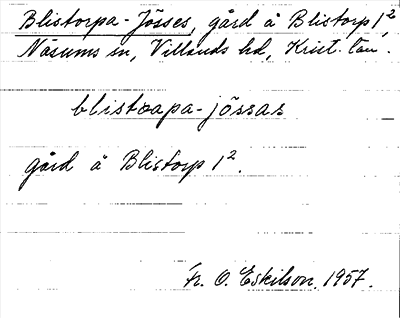 Blistorpa-Jösses, gård å Blistorp 1²,
Näsums sn, Villands hd, Krist. län.
blistɷapa-jössas
gård å Blistorp 1².
Fr. O. Eskilson. 1957.